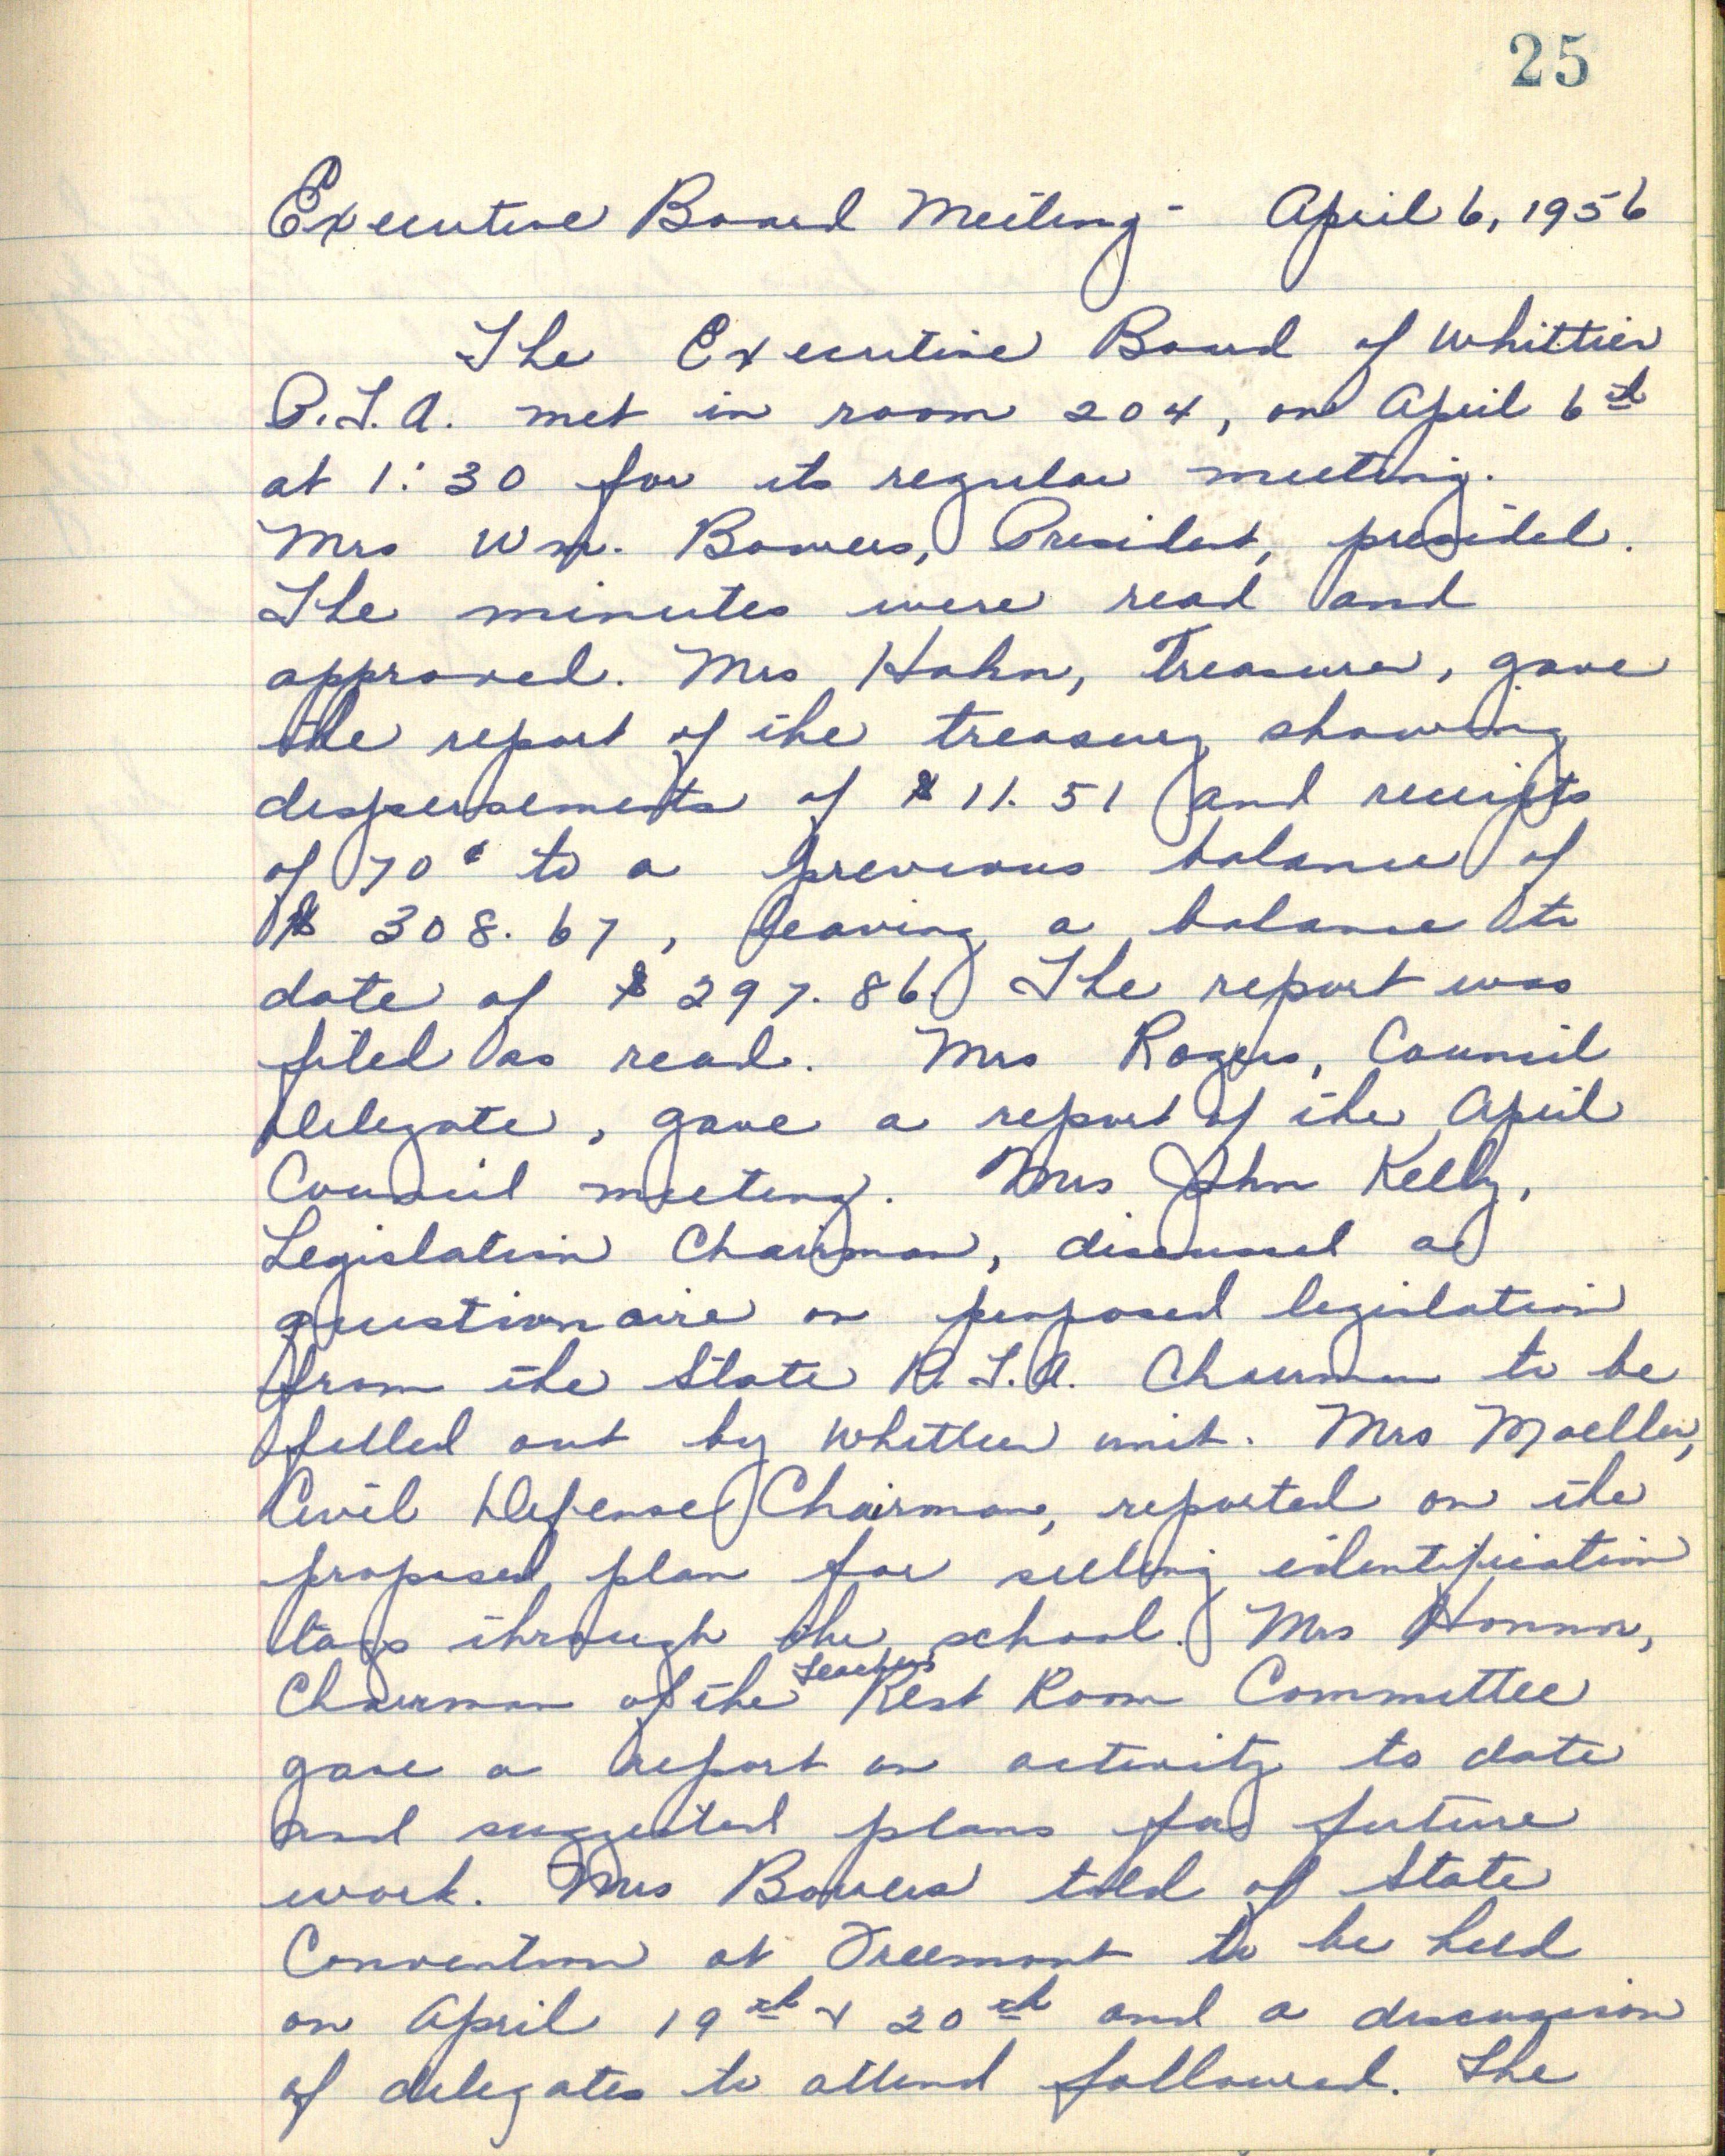 25
Executive Board Meeting - April 6, 1956
The Executive Board of Whittier
P.T.A. met in room 204, on April 6th
at 1:30 for its regular meeting.
Mrs Wm. Bowers, President, presided.
The minutes were read and
approved. Mrs Hahn, Treasurer, gave
the report of the treasury showing
dispersements of $11.51 and receipts
of 70¢ to a previous balance of
$308.67, leaving a balance to
date of $297.86. The report was
filed as read. Mrs Rogers, Council
Delegate, gave a report of the April
Council meeting. Mrs John Kelly,
Legislation Chairman, discussed a
questionaire on proposed legislation
from the State P.T.A. Chairman to be
filled out by Whittier unit. Mrs Moeller,
Civil Defense Chairman, reported on the
proposed plan for selling identification
tags through the school. Mrs
Teachers
Chairman of the Rest Room Committee
gave a report on activity to date
and suggested plans for future
work. Mrs Bowers told of State
Convention at Freemont to be held
on April 19th & 20th and a discussion
of delegates to attend followed. The